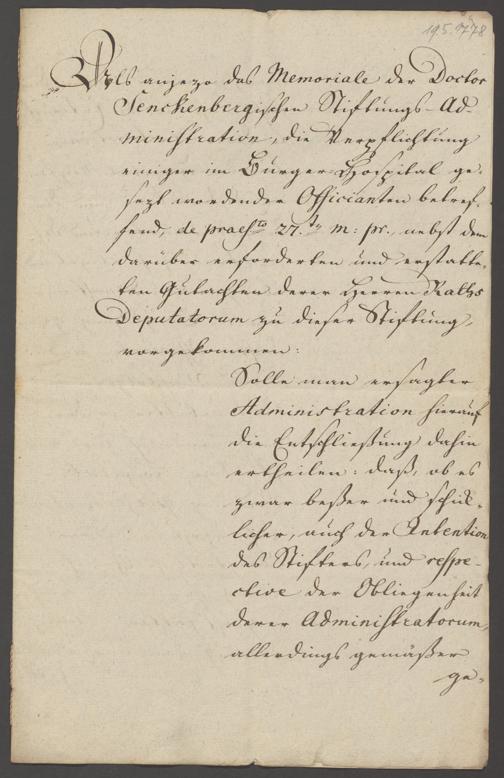 19.5.1778
Als anjezo das Memoriale der Doctor
Senckenbergischen Stiftungs-Ad-
ministration, die Verpflichtung
einiger im Burger-Hospital ge-
sezt wordender Officianten betref-
fend, de praes.to 27.ten m: pr., nebst dem
darüber erforderten und erstatte-
ten Gutachten derer Herren Raths
Deputatorum zu dieser Stiftung,
vorgekommen:
Solle man ersagter
Administration hierauf
die Entschließung dahin
ertheilen: daß, ob es
zwar beßer und schick-
licher, auch der Intention
des Stifters, und respe-
ctive der Obliegenheit
derer Administratorum,
allerdings gemäßer
ge-